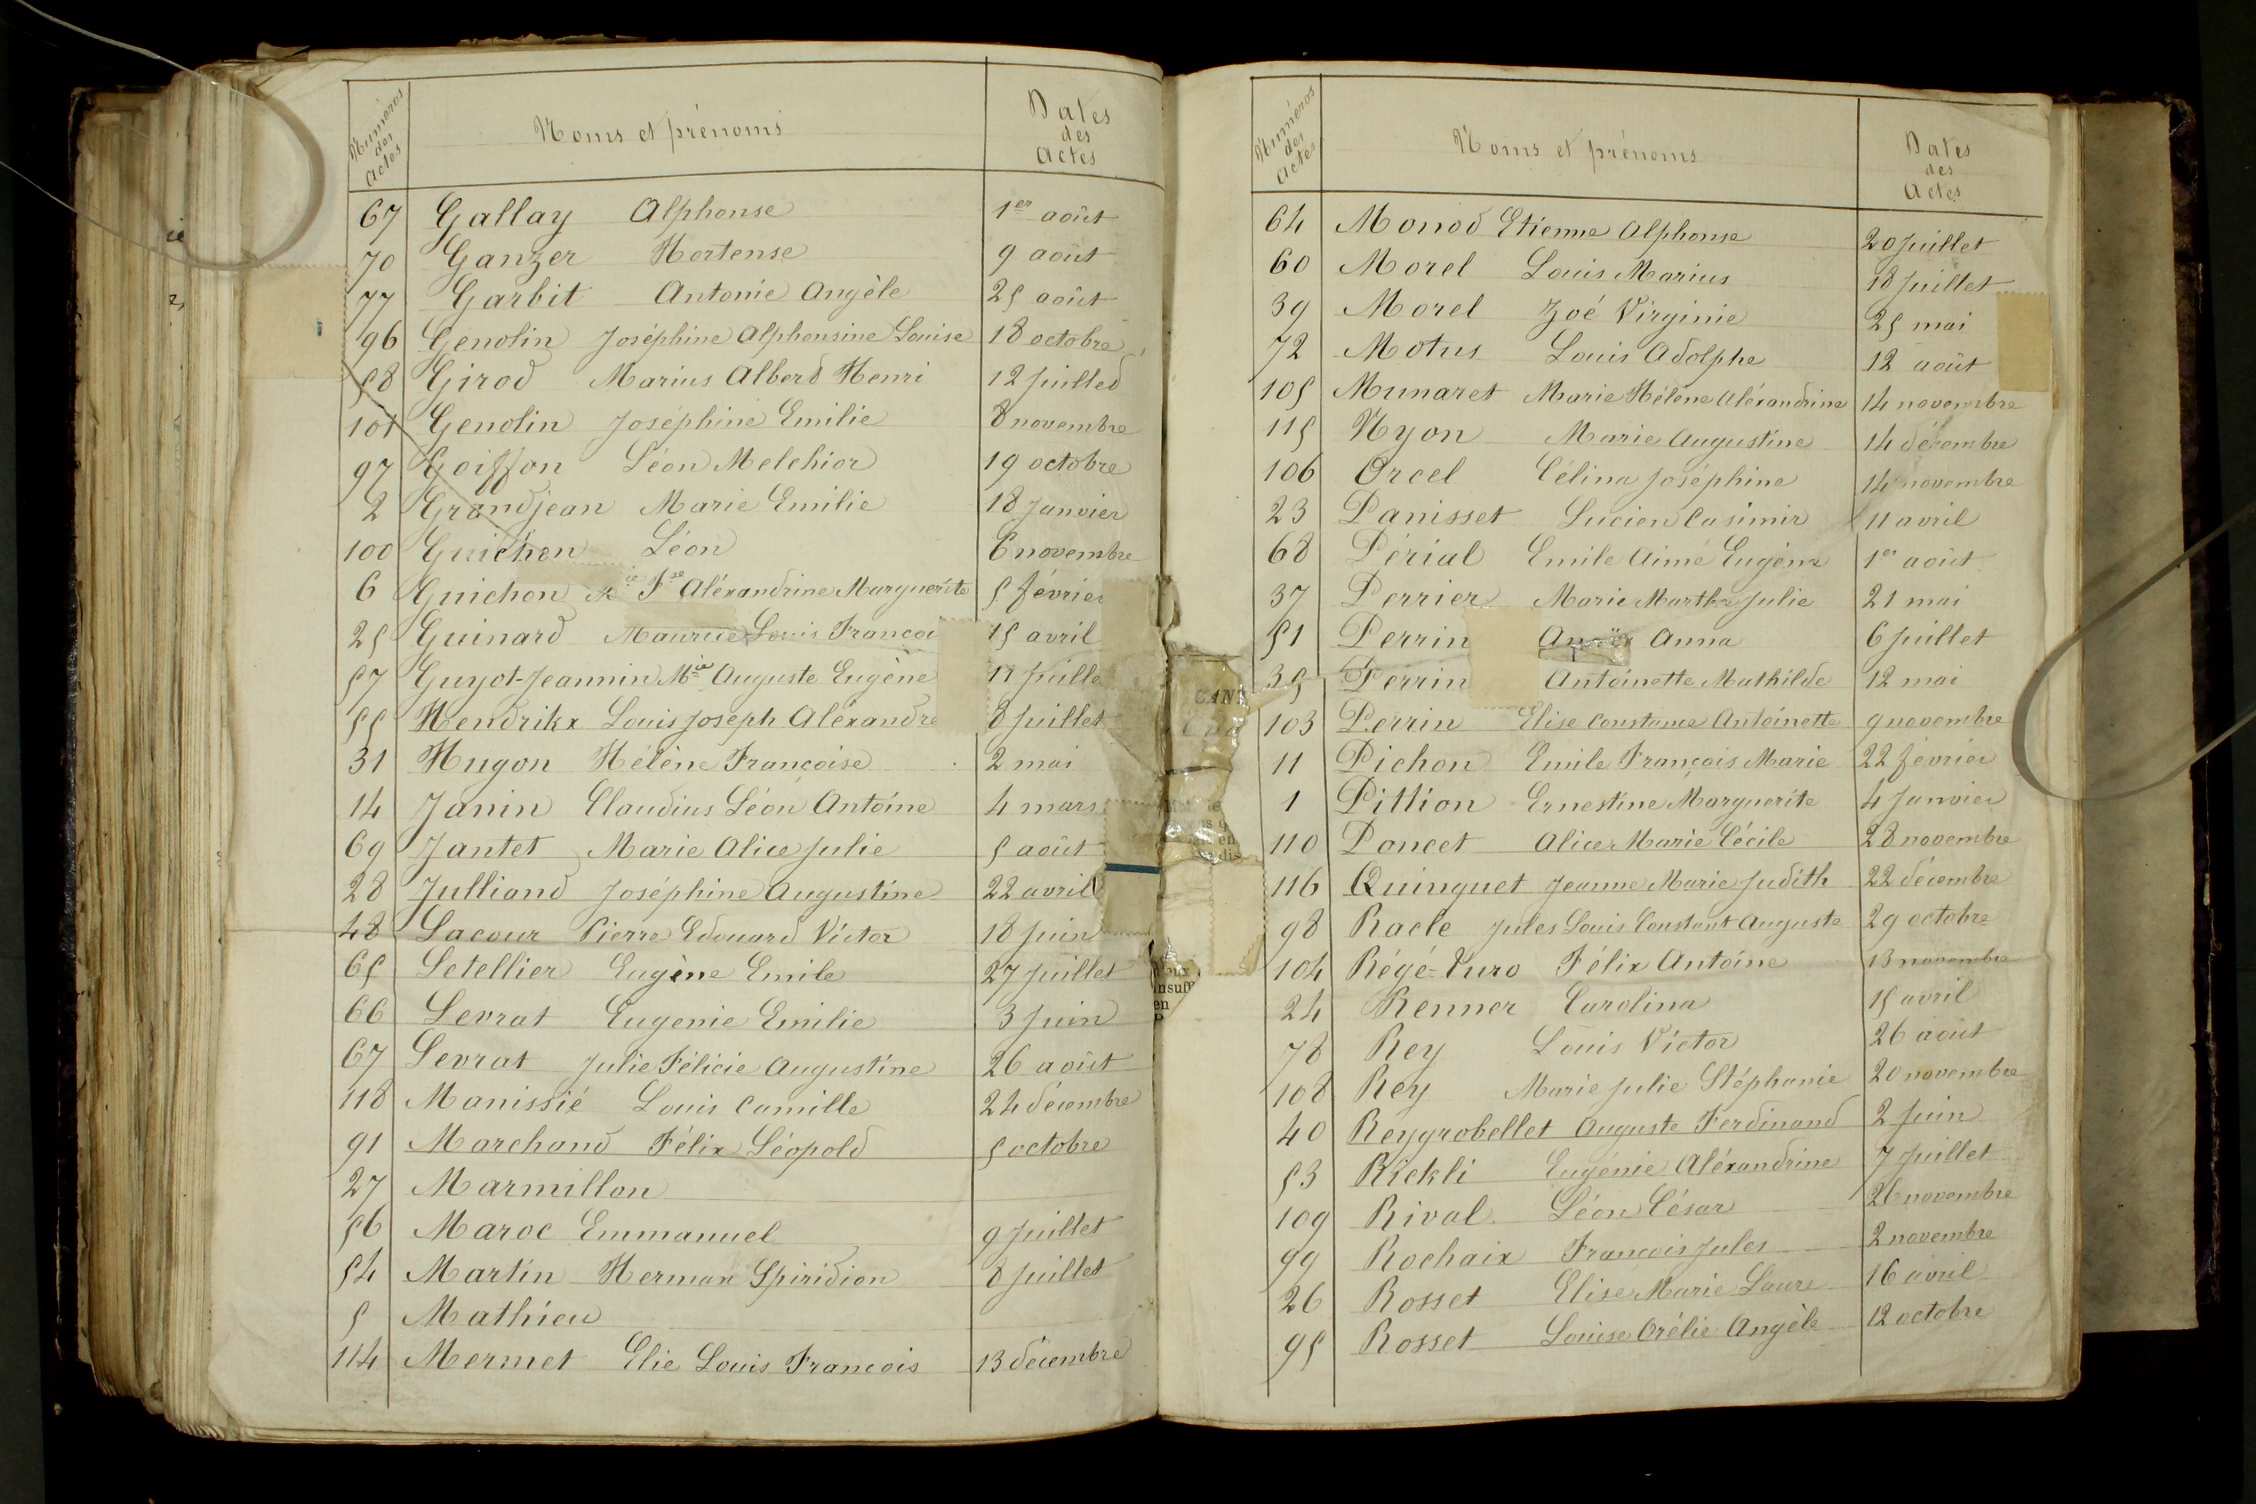 Numéros des Actes Noms et prénoms Dates des Actes
67 Gallay Alphonse 1er août
70 Ganzer Hortense 9 août
77 Garbit Antonie Angèle 25 août
96 Genolin Joséphine Alphonsine Louise 18 octobre
58 Girod Marius Alberd Henri 12 juilled
101 Genolin Joséphine Emilie 8 novembre
97 Goiffon Léon Melchior 19 octobre
2 Grandjean Marie Emilie 18 Janvier
100 Guichon Léon 6 novembre
6 Guichon Fse Aléxandrine Marguerite 5 février
25 Guinard Maurice Louis Françoi 15 avril
57 Guyot-Jeannin Mie Auguste Eugène 11 juille
55 Hendrikx Louis Joseph Aléxandre 8 juillet
31 Hugon Hélène Françoise 2 mai
14 Janin Claudius Léon Antoine 4 mars
69 Jantet Marie Alice Julie 5 août
28 Julliand Joséphine Augustine 22 avril
48 Lacour Pierre Edouard Victor 18 juin
65 Letellier Eugène Emile 27 juillet
66 Levrat Eugenie Emilie 3 juin
67 Levrat Julie Félicie Augustine 26 août
118 Manissié Louis Camille 24 décembre
91 Marchand Félix Léopold 5 octobre
27 Marmillon
56 Maroc Emmanuel 9 juillet
54 Martin Herman Spiridion 8 juillet
5 Mathieu
114 Mermet Elie Louis François 13 décembre
Numéros des Actes Noms et prénoms Dates des Actes
64 Monod Etienne Alphonse 20 juillet
60 Morel Louis Marius 18 juillet
39 Morel Zoé Virginie 25 mai
72 Motus Louis Adolphe 12 août
105 Munaret Marie Hélène Aléxandrine 14 novembre
115 Nyon Marie Augustine 14 décembre
106 Orcel Célina Joséphine 14 novembre
23 Panisset Lucien Casimir 11 avril
68 Périal Emile Aimé Eugène 1er août
37 Perrier Marie Marthe Julie 21 mai
51 Perrin Anaïs Anna 6 juillet
35 Perrin Antoinette Mathilde 12 mai
103 Perrin Elise Constance Antoinette 9 novembre
11 Pichon Emile François Marie 22 février
1 Pillion Ernestine Marguerite 4 Janvier
110 Poncet Alice Marie Cécile 28 novembre
116 Quinquet Jeanne Marie Judith 22 décembre
98 Racle Jules Louis Constant Auguste 29 octobre
104 Régé-Turo Félix Antoine 13 novembre
24 Renner Carolina 15 avril
78 Rey Louis Victor 26 août
108 Rey Marie Julie Stéphanie 20 novembre
40 Reygrobellet Auguste Ferdinand 2 juin
53 Rickli Eugénie Aléxandrine 7 juillet
109 Rival Léon César 26 novembre
99 Rochaix François Jules 2 novembre
26 Rosset Elise Marie Laure 16 avril
95 Rosset Louise Orélie Angèle 12 octobre